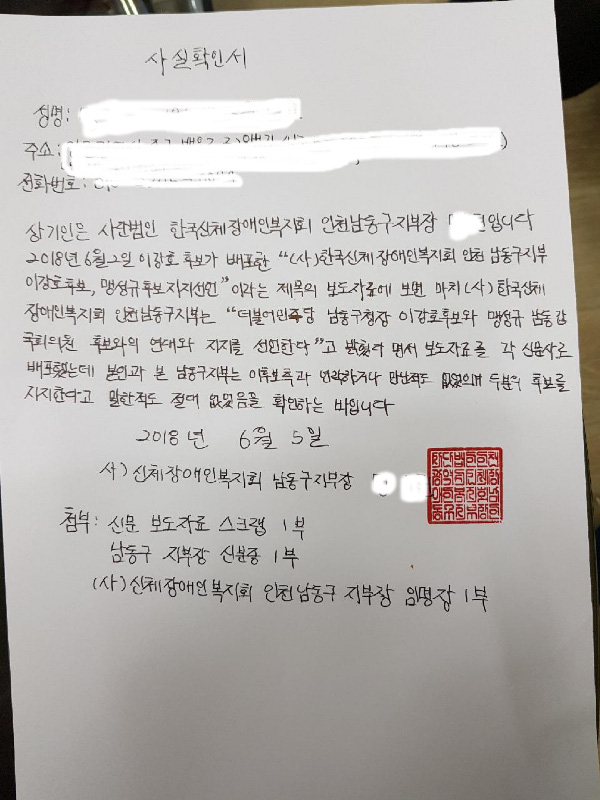 사실확인서
성명:
주소:
전화번호:
상기인은 사단법인 한국신체장애인복지회 인천남동구지부장 입니다
2018년 6월2일 이강호 후보가 배포한 "(사)한국신체장애인복지회 인천 남동구지부
이강호후보, 맹성규후보 지지선언" 이라는 제목의 보도자료에 보면 마치 (사)한국신체
장애인복지회 인천남동구지부는 "더불어민주당 남동구청장 이강호후보와 맹성규 남동갑
국회의원 후보와의 연대와 지지를 선언한다"고 밝혔다 면서 보도자료를 각 신문사로
배포했는데 본인과 본 남동구지부는 이후보측과 연락하거나 만난적도 없었으며 두분의 후보를
지지한다고 말한적도 절대 없었음을 확인하는 바입니다
2018년 6월 5일
사)신체장애인복지회 남동구지부장
첨부: 신문 보도자료 스크랩 1부
남동구 지부장 신분증 1부
(사)신체장애인복지회 인천남동구 지부장 임명장 1부